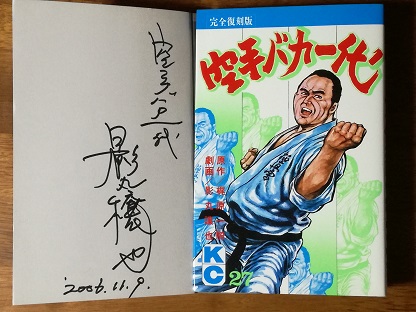 空手バカ一代
影丸穣也
'2006.11.9.
完全復刻版
空手バカ一代
原作 梶原一騎
劇画 影丸譲也
KC
27